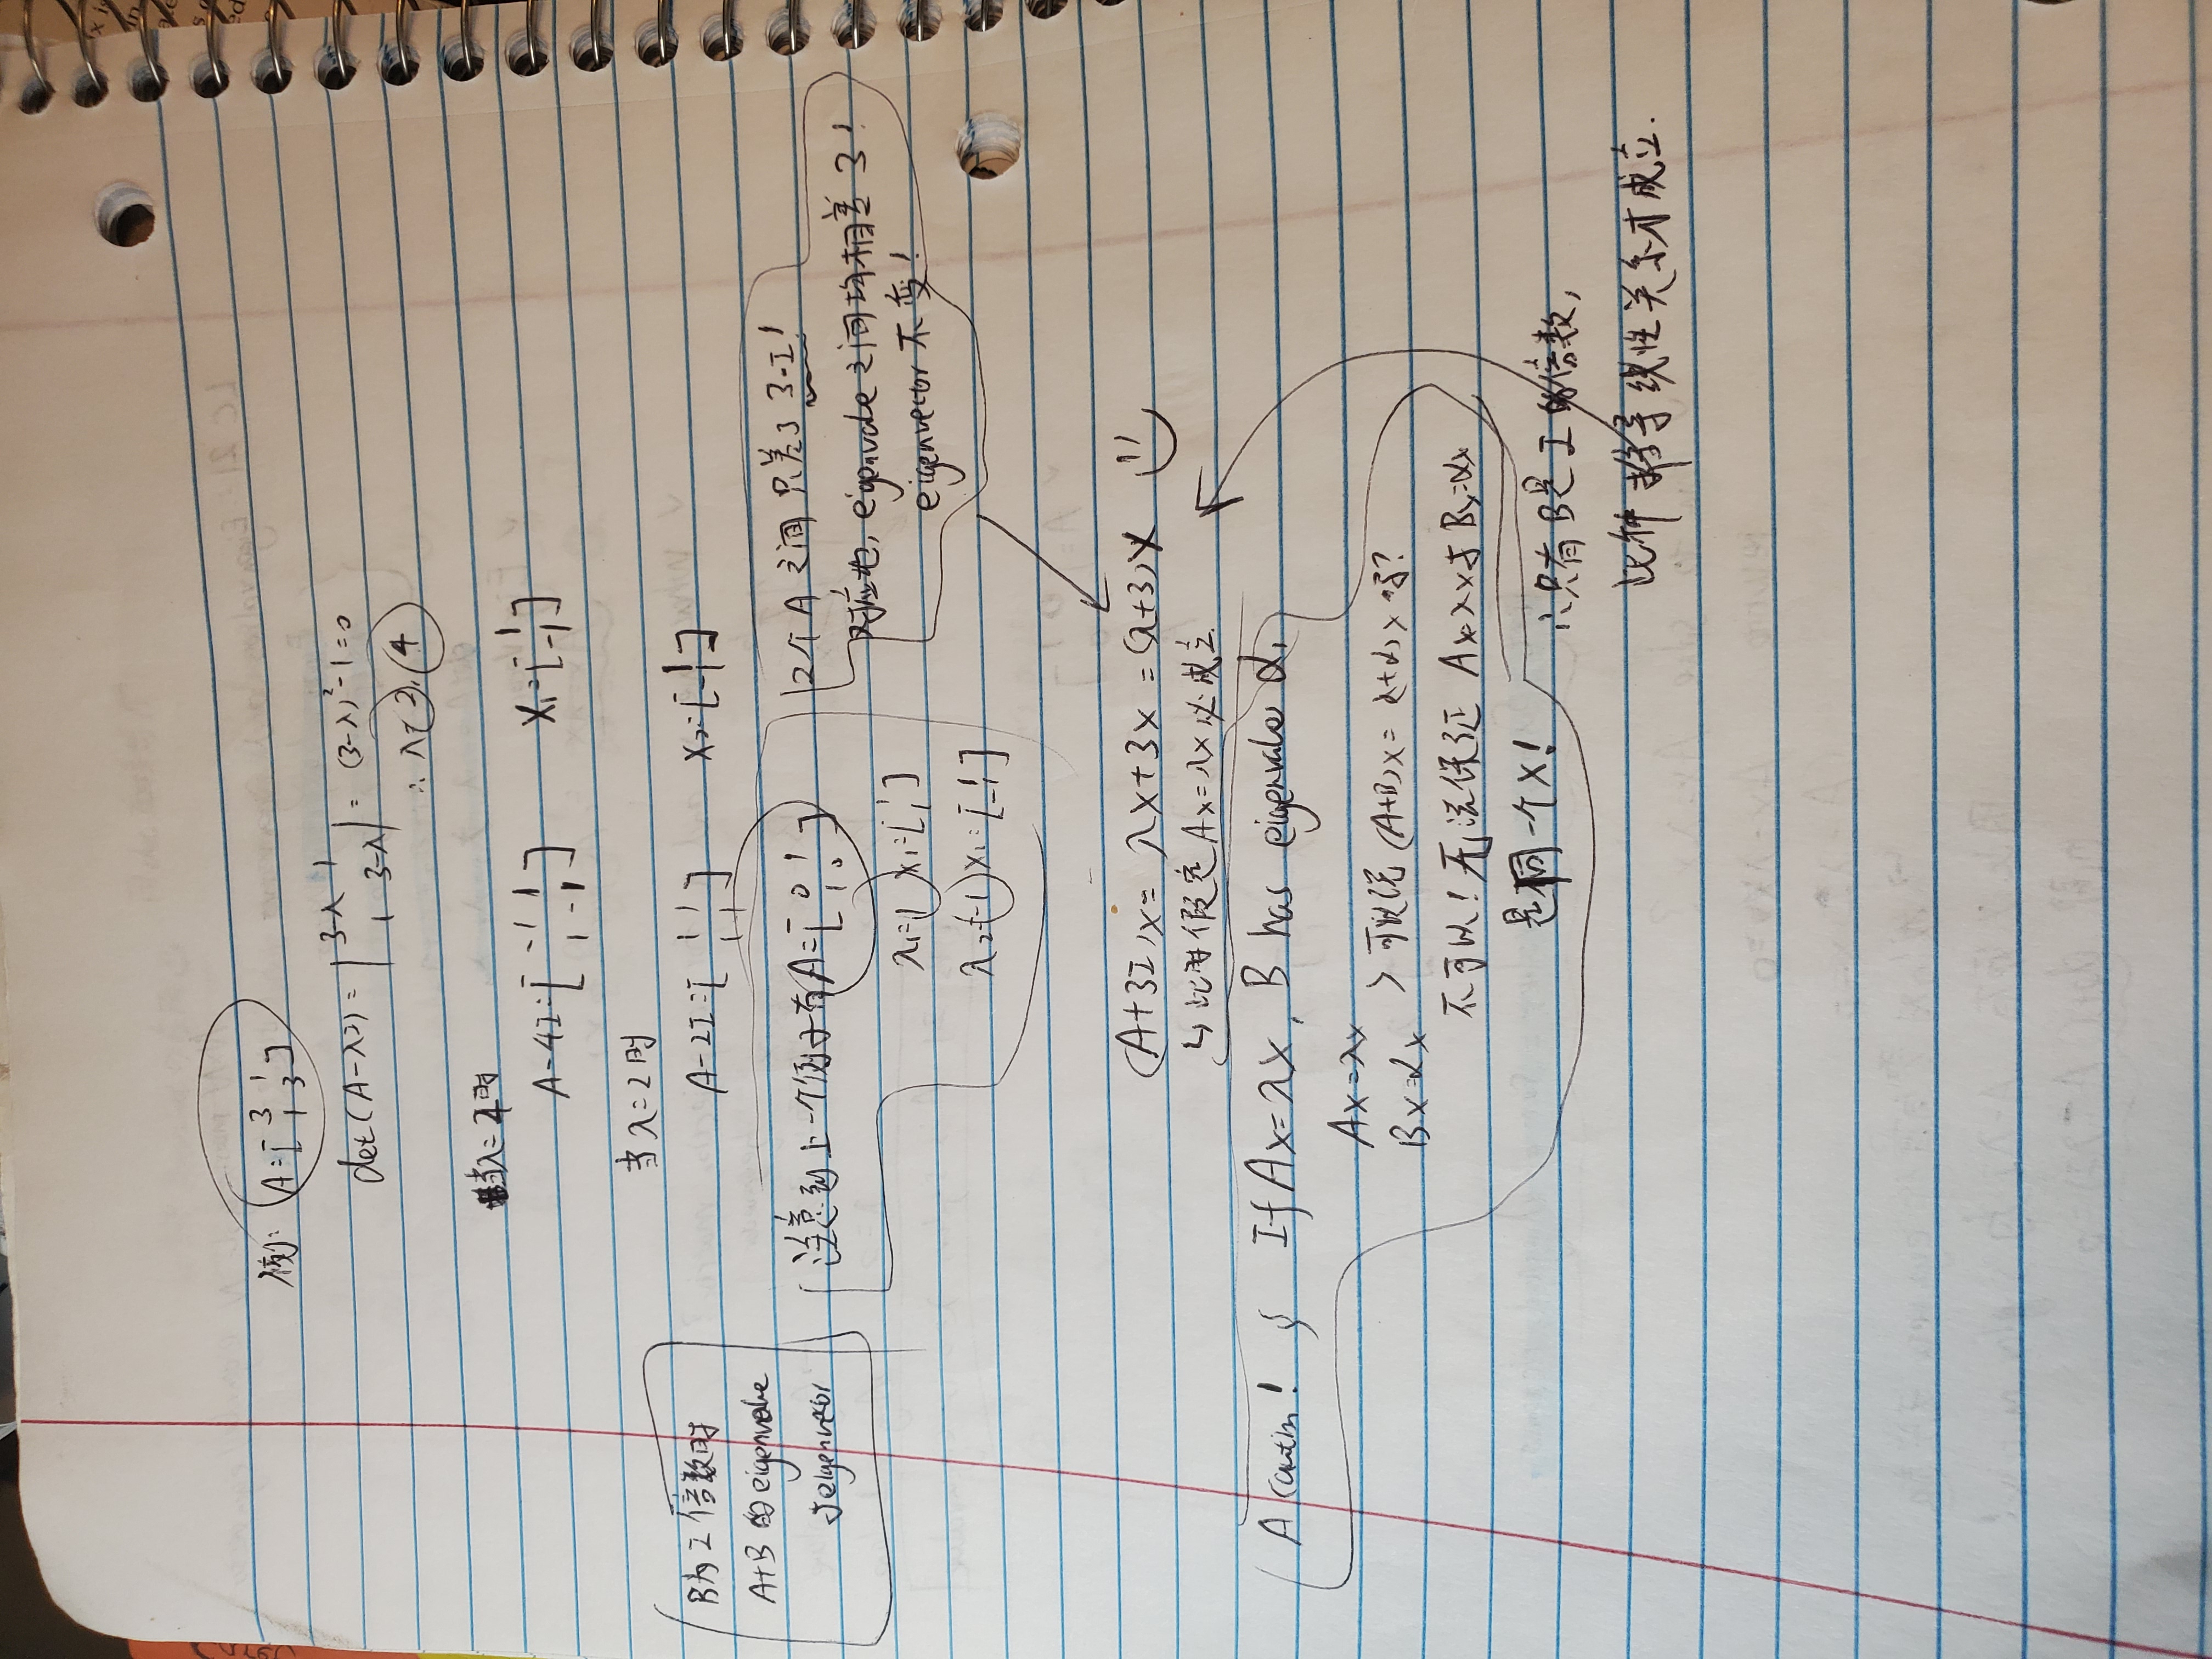 例: A=[3 1
1 3]
det(A-λI) = |3-λ 1
1 3-λ| = (3-λ)²-1=0
∴ λ=2, 4
当λ=4时
A-4I=[-1 1
1 -1] X₁=[1
-1]
当λ=2时
A-2I=[1 1
1 1] X₂=[1
-1]
B为I倍数时
A+B的eigenvalue
与eigenvector
注意到上一个例子有A=[0 1
1 0]
λ₁=1 X₁=[1
1]
λ₂=-1 X₁=[1
-1]
2个A之间只差了3·I!
对应地, eigenvalue之间均相差3!
eigenvector不变!
(A+3I)x= λx+3x =(λ+3)x
↳此时假定Ax=λx必成立
A caution! If Ax=λx, B has eigenvalues α,
Ax=λx
Bx=αx
>可以说(A+B)x=(λ+α)x吗?
不可以!无法保证 Ax=λx与Bx=αx
是同一个X!
∴只有B是I的倍数,
此种推导线性关系才成立.